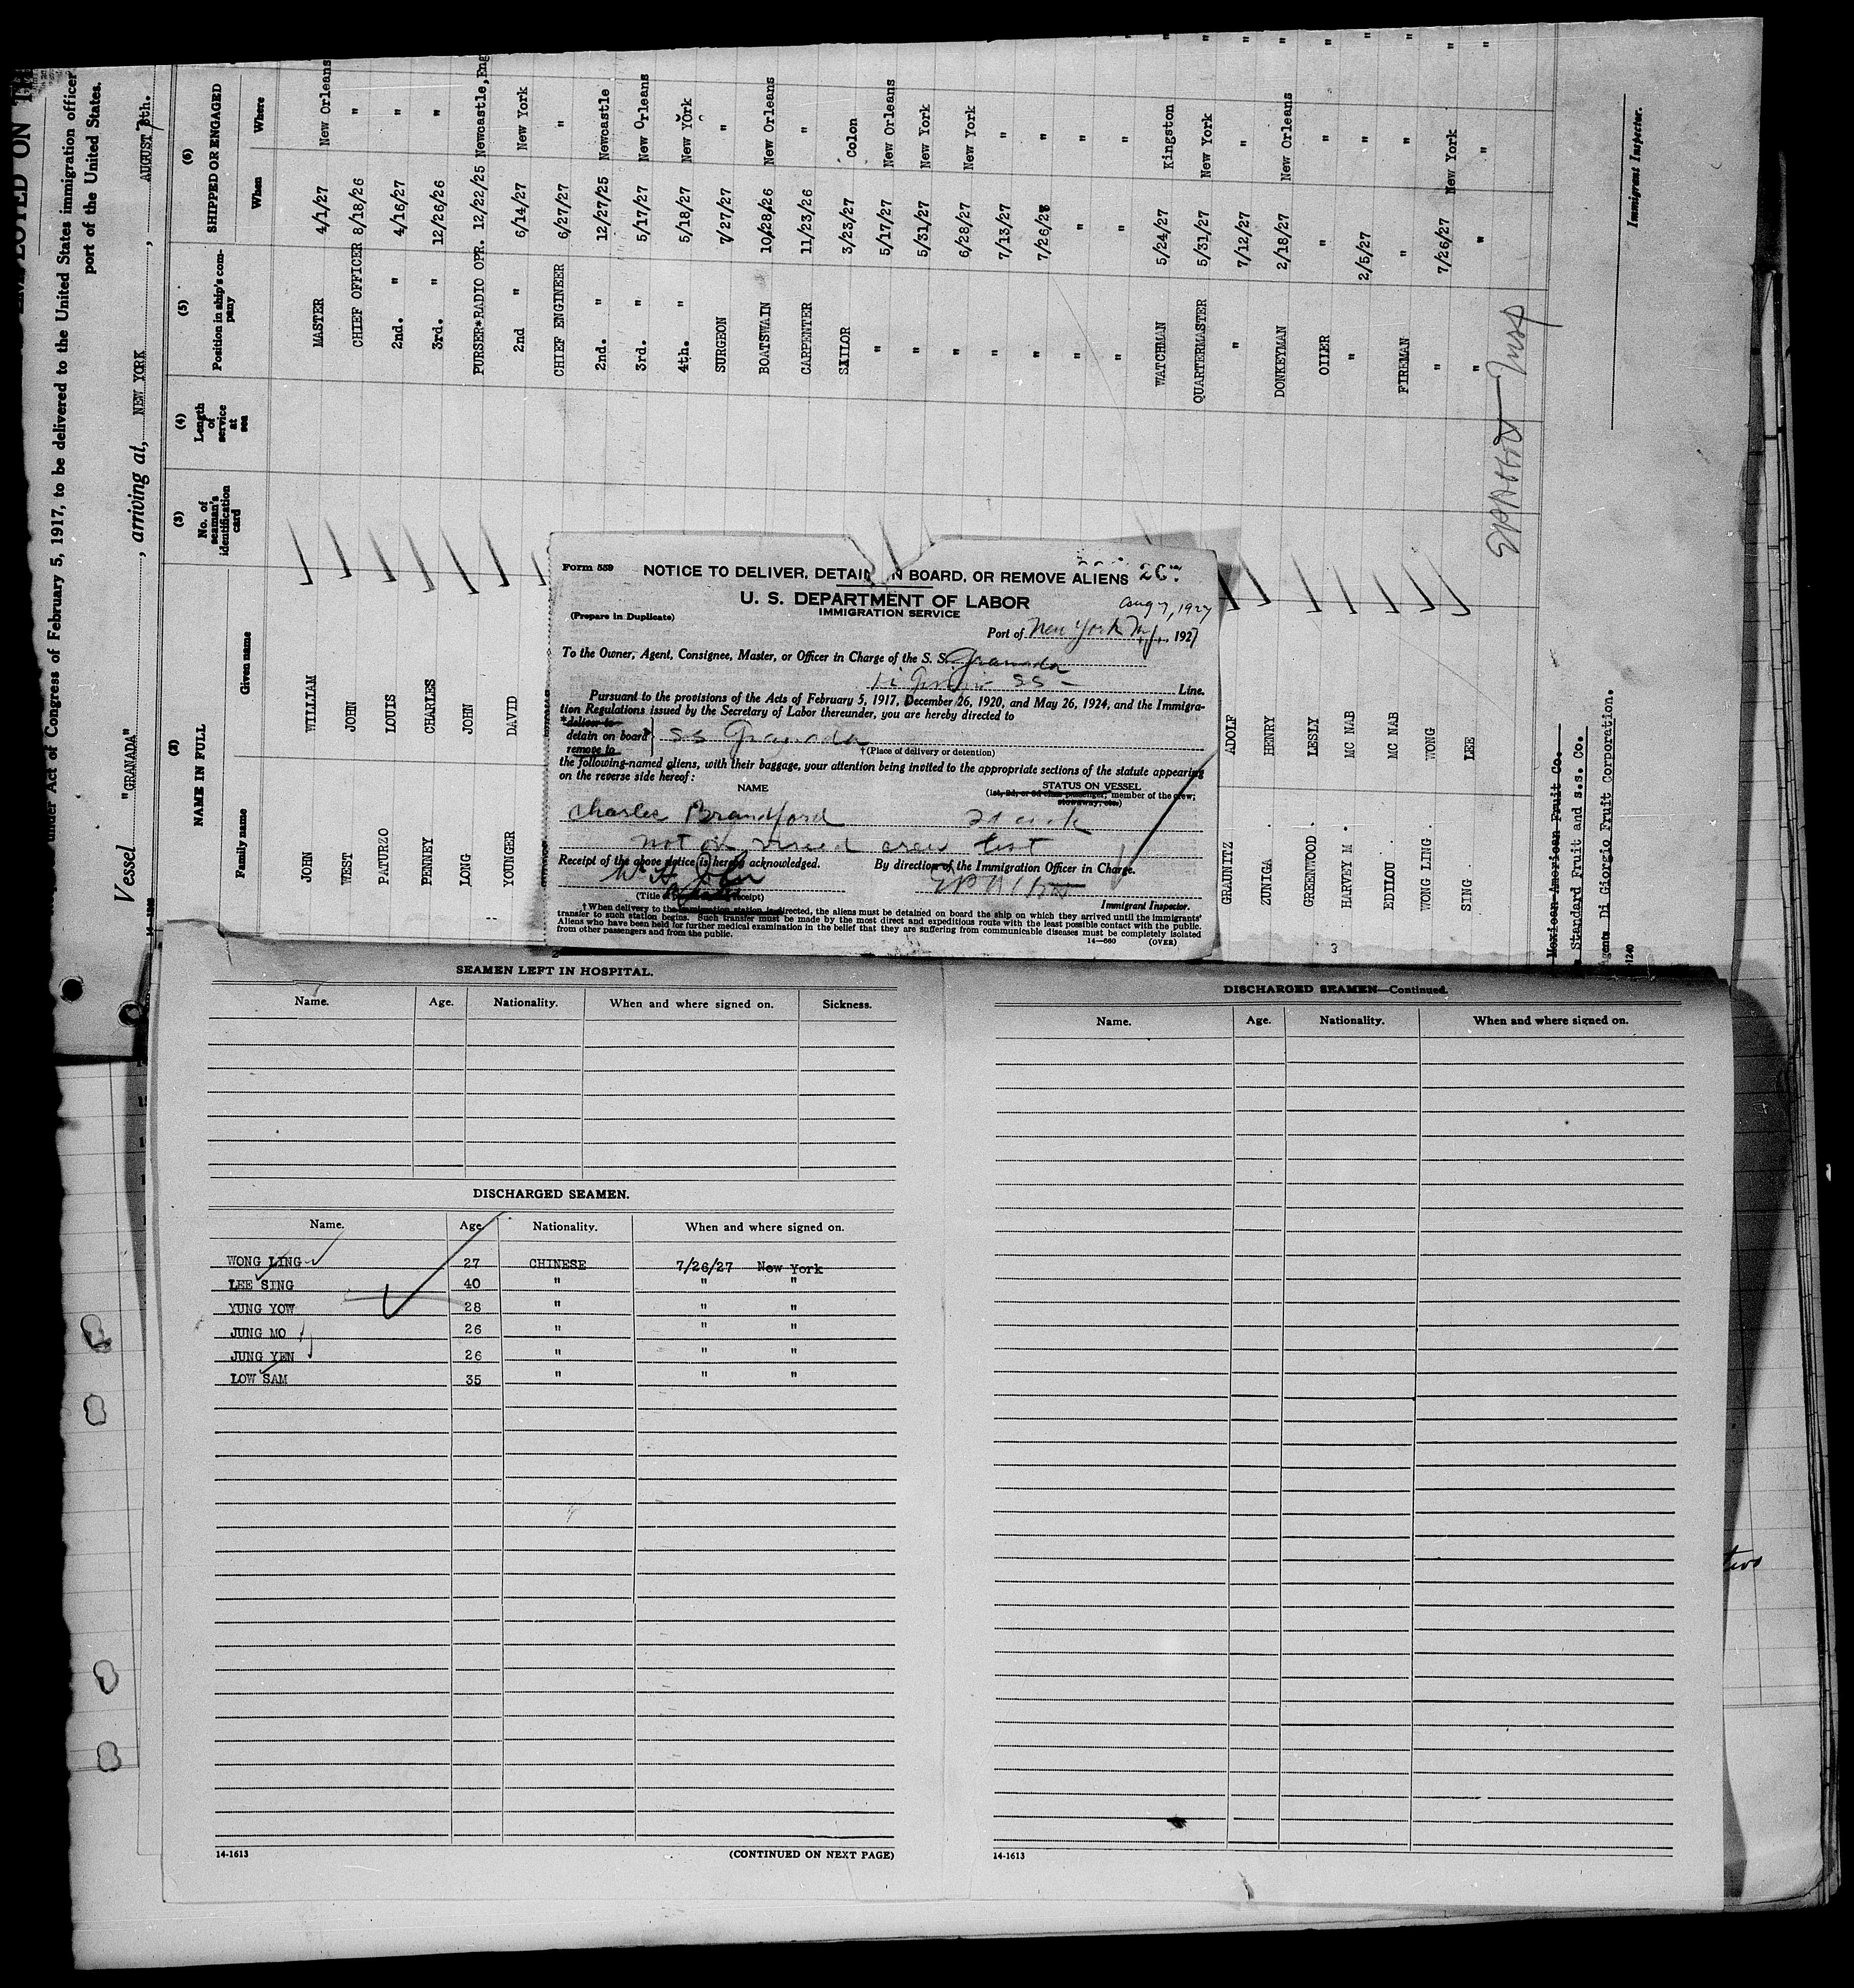 EMPLOYED ON
under Act of Congress of February 5, 1917, to be delivered to the United States immigration officer
port of the United States.
Vessel "GRANADA", arriving at, NEW YORK, AUGUST
(2) (3) (4) (5) (6)
NAME IN FULL No. of seaman's identification card Length of service at sea Position in ship's company SHIPPED OR ENGAGED
Family name Given name When Where
JOHN WILLIAM MASTER 4/1/27 New Orleans
WEST JOHN CHIEF OFFICER 8/18/26 "
PATURZO LOUIS 2nd. " 4/16/27 "
PENNEY CHARLES 3rd. " 12/26/26 "
LONG JOHN PURSER*RADIO OPR. 12/22/25 Newcastle, Eng
YOUNGER DAVID 2nd " 6/14/27 New York
CHIEF ENGINEER 6/27/27 "
2nd. " 12/27/25 Newcastle
3rd. " 5/17/27 New Orleans
4th. " 5/18/27 New York
SURGEON 7/27/27 "
BOATSWAIN 10/28/26 New Orleans
CARPENTER 11/23/26 "
SAILOR 3/23/27 Colon
" 5/17/27 New Orleans
" 5/31/27 New York
" 6/28/27 New York
" 7/13/27 "
" 7/26/27 "
" " "
" " "
WATCHMAN 5/24/27 Kingston
GRAUNITZ ADOLF QUARTERMASTER 5/31/27 New York
ZUNIGA HENRY " 7/12/27 "
GREENWOOD LESLY DONKEYMAN 2/18/27 New Orleans
HARVEY M MC NAB OILER " "
EDILOU MC NAB " 2/5/27 "
WONG LING WONG FIREMAN " "
SING LEE " 7/26/27 New York
" " "
Immigrant Inspector.
Mexican-American Fruit Co.
Standard Fruit and s.s. Co.
Agents Di Giorgio Fruit Corporation.
Form 559
NOTICE TO DELIVER, DETAIN ON BOARD, OR REMOVE ALIENS
U. S. DEPARTMENT OF LABOR
IMMIGRATION SERVICE
(Prepare in Duplicate)
Aug 7, 1927
Port of New York N.Y., 1927
To the Owner, Agent, Consignee, Master, or Officer in Charge of the S. S. Granada
Di Giorgio SS Line.
Pursuant to the provisions of the Acts of February 5, 1917, December 26, 1920, and May 26, 1924, and the Immigra-
tion Regulations issued by the Secretary of Labor thereunder, you are hereby directed to
*deliver to
detain on board
remove to
SS Granada
(Place of delivery or detention)
the following-named aliens, with their baggage, your attention being invited to the appropriate sections of the statute appearing
on the reverse side hereof:
NAME STATUS ON VESSEL
(1st, 2d, or 3d class passenger; member of the crew; stowaway, etc.)
Charles Brandford 2d cook
not on visaed crew list
Receipt of the above notice is hereby acknowledged. By direction of the Immigration Officer in Charge.
Immigrant Inspector.
† When delivery to the immigration station is directed, the aliens must be detained on board the ship on which they arrived until the immigrants'
transfer to such station begins. Such transfer must be made by the most direct and expeditious route with the least possible contact with the public.
Aliens who have been held for further medical examination in the belief that they are suffering from communicable diseases must be completely isolated
from other passengers and from the public.
14—660 (OVER)
2
3
SEAMEN LEFT IN HOSPITAL.
Name. Age. Nationality. When and where signed on. Sickness.
DISCHARGED SEAMEN.
Name. Age. Nationality. When and where signed on.
WONG LING 27 CHINESE 7/26/27 New York
LEE SING 40 " " "
YUNG YOW 28 " " "
JUNG MO 26 " " "
JUNG YEN 26 " " "
LOW SAM 35 " " "
14-1613 (CONTINUED ON NEXT PAGE)
DISCHARGED SEAMEN—Continued.
Name. Age. Nationality. When and where signed on.
14-1613